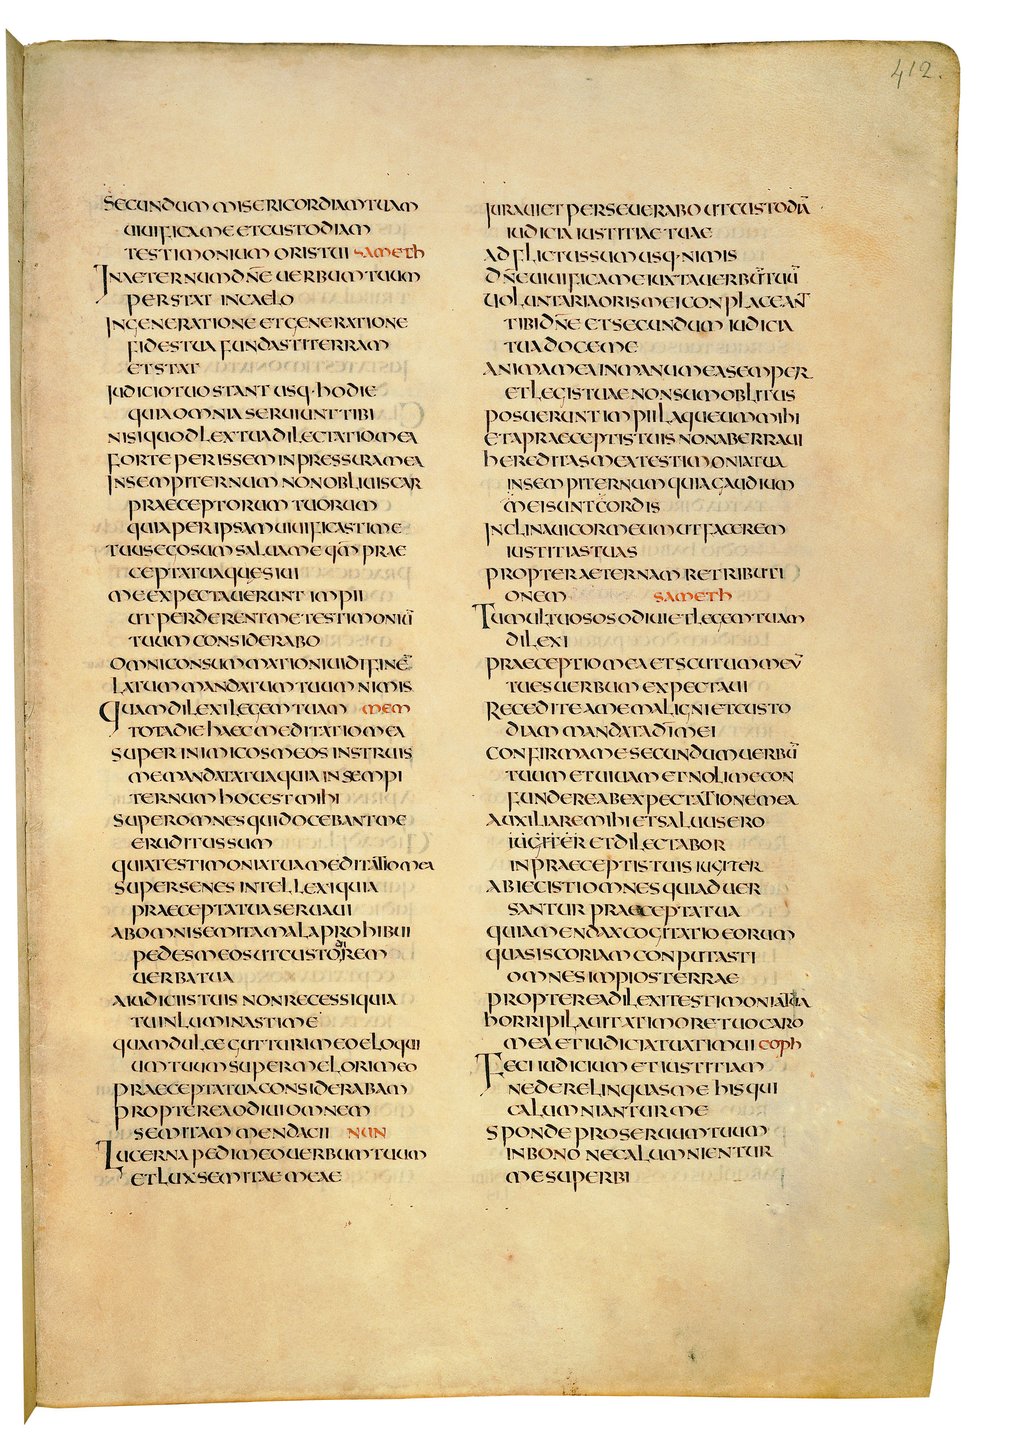 412.
SECUNDUM MISERICORDIAM TUAM
UIUIFICA ME ET CUSTODIAM
TESTIMONIUM ORIS TUI SAMETH
IN AETERNUM DÑE UERBUM TUUM
PERSTAT IN CAELO
IN GENERATIONE ET GENERATIONE
FIDES TUA FUNDASTI TERRAM
ET STAT
IUDICIO TUO STANT USQ· HODIE
QUIA OMNIA SERUIUNT TIBI
NISI QUOD LEX TUA DILECTATIO MEA
FORTE PERISSEM IN PRESSURA MEA
IN SEMPITERNUM NON OBLIUISCAR
PRAECEPTORUM TUORUM
QUIA PER IPSA UIUIFICASTI ME
TUUS EGO SUM SALUA ME QM̄ PRAE
CEPTA TUA QUESIUI
ME EXPECTAUERUNT IMPII
UT PERDERENT ME TESTIMONIŪ
TUUM CONSIDERABO
OMNI CONSUMMATIONI UIDI FINĒ
LATUM MANDATUM TUUM NIMIS
QUAM DILEXI LEGEM TUAM MEM
TOTA DIE HAEC MEDITATIO MEA
SUPER INIMICOS MEOS INSTRUIS
ME MANDATA TUA QUIA IN SEMPI
TERNUM HOC EST MIHI
SUPER OMNES QUI DOCEBANT ME
ERUDITUS SUM
QUIA TESTIMONIA TUA MEDITATIO MEA
SUPER SENES INTELLEXI QUIA
PRAECEPTA TUA SERUAUI
AB OMNI SEMITA MALA PROHIBUI
PEDES MEOS UT CUSTODIREM
UERBA TUA
A IUDICIIS TUIS NON RECESSI QUIA
TU INLUMINASTI ME
QUAM DULCE GUTTURI MEO ELOQUI
UM TUUM SUPER MEL ORI MEO
PRAECEPTA TUA CONSIDERABAM
PROPTEREA ODIUI OMNEM
SEMITAM MENDACII NUN
LUCERNA PEDI MEO UERBUM TUUM
ET LUX SEMITAE MEAE
IURAUI ET PERSEUERABO UT CUSTODIĀ
IUDICIA IUSTITIAE TUAE
ADFLICTUS SUM USQ· NIMIS
DÑE UIUIFICA ME IUXTA UERBŪ TUŪ
UOLUNTARIA ORIS MEI CONPLACEANT
TIBI DÑE ET SECUNDUM IUDICIA
TUA DOCE ME
ANIMA MEA IN MANU MEA SEMPER
ET LEGIS TUAE NON SUM OBLITUS
POSUERUNT IMPII LAQUEUM MIHI
ET A PRAECEPTIS TUIS NON ABERRAUI
HEREDITAS MEA TESTIMONIA TUA
IN SEMPITERNUM QUIA GAUDIUM
MEI SUNT CORDIS
INCLINAUI COR MEUM UT FACEREM
IUSTITIAS TUAS
PROPTER AETERNAM RETRIBUTI
ONEM SAMETH
TUMULTUOSOS ODIUI ET LEGEM TUAM
DILEXI
PRAECEPTIO MEA ET SCUTUM MEU
TU ES UERBUM EXPECTAUI
RECEDITE A ME MALIGNI ET CUSTO
DIAM MANDATA DĪ MEI
CONFIRMA ME SECUNDUM UERBŪ
TUUM ET UIUAM ET NOLI ME CON
FUNDERE AB EXPECTATIONE MEA
AUXILIARE MIHI ET SALUUS ERO
IUGITER ET DILECTABOR
IN PRAECEPTIS TUIS IUGITER
ABIECISTI OMNES QUI ADUER
SANTUR PRAECEPTA TUA
QUIA MENDAX COGITATIO EORUM
QUASI SCORIAM CONPUTASTI
OMNES IMPIOS TERRAE
PROPTEREA DILEXI TESTIMONIA TUA
HORRIPILAUIT A TIMORE TUO CARO
MEA ET IUDICIA TUA TIMUI COPH
FECI IUDICIUM ET IUSTITIAM
NE DERELINQUAS ME HIS QUI
CALUMNIANTUR ME
SPONDE PRO SERUUM TUUM
IN BONO NE CALUMNIENTUR
ME SUPERBI